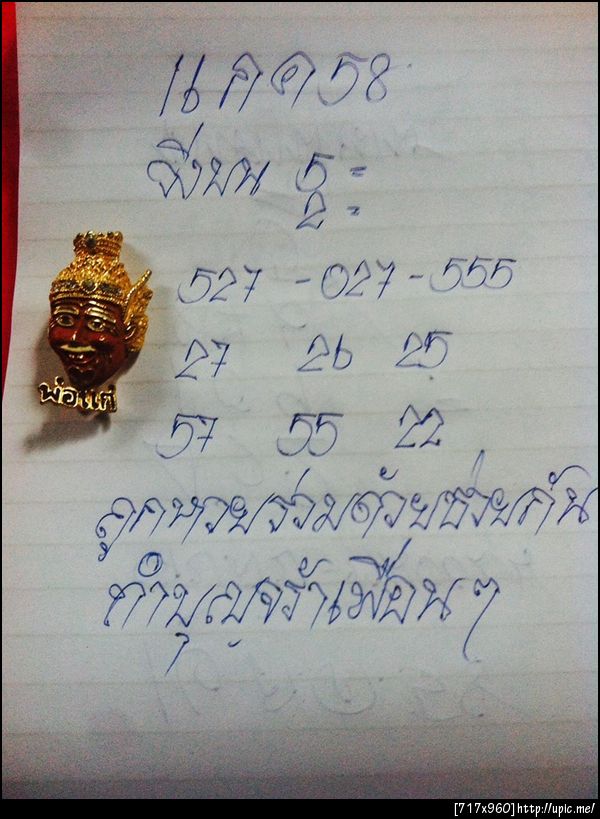 นคค58
วิ่งบน 5 =
2 =
527 - 027 - 555
27 26 25
57 55 22
พ่อแก่
ถูกหวยร่วมด้วยช่วยกัน
ทำบุญจร้าเพื่อนๆ
[717x960]http://upic.me/